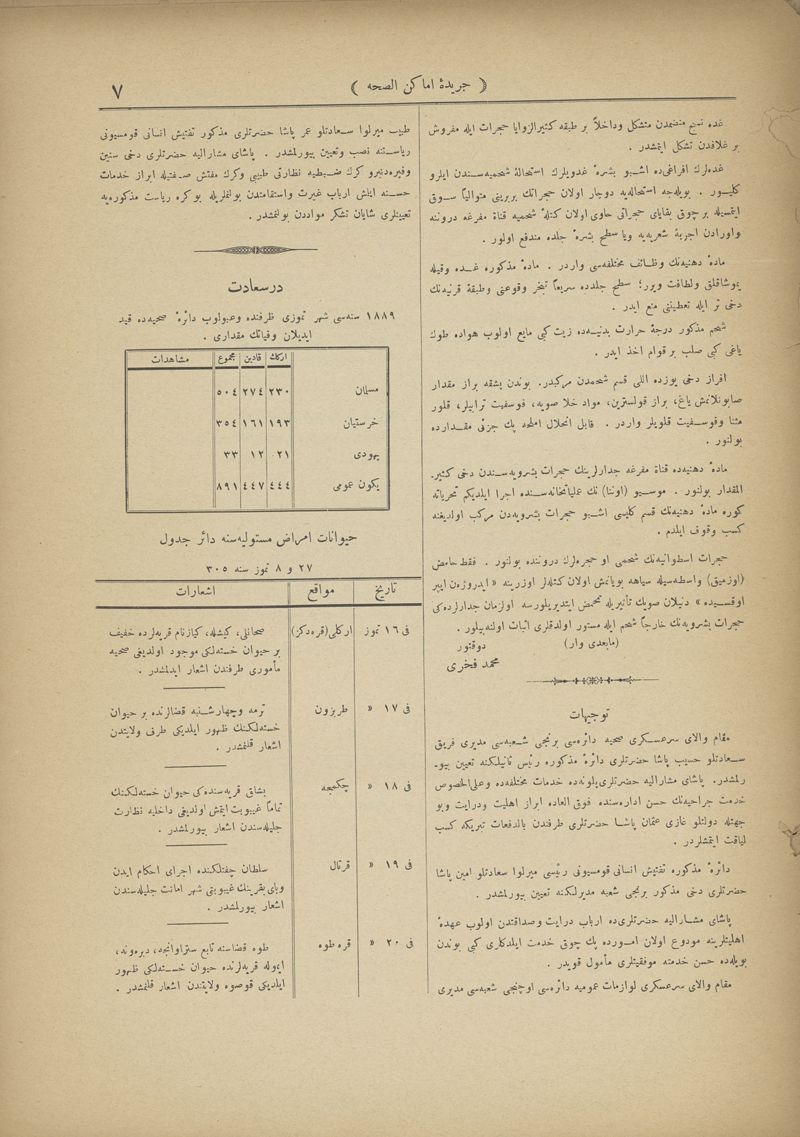 ٧
( جریدهٔ اماکن الصحه )
غده نسیج منضمدن متشکل وداخلاً بر طبقه کثیرالزوایا حجرات ایله مفروش
بر غلافدن تشکل ایتمشدر .
غده‌لرك افراغی‌ده اشبو بشرهٔ غدویلرك استحالهٔ شحمیه‌سندن ایلرو
کلیور . بویله‌جه استحاله‌یه دوچار اولان حجراتك بربرینی متوالیاً سوق
ایتمسیله برچوق بقایای حجراتی حاوی اولان کتلهٔ شحمیه قناة مفرغه دروننه
واورادن اجربهٔ شعریه‌یه ویا سطح بشرهٔ جلده مندفع اولور .
مادهٔ دهنیه‌نك وظائف مختلفه‌سی واردر . مادهٔ مذکوره غده وقیله
یموشاقلق ولطافت ویرر؛ سطح جلدده سریعاً تبخر وقوعنی وطبقهٔ قرنیه‌نك
دخی تر ایله تعطیننی منع ایدر .
شحم مذکور درجهٔ حرارت بدنیه‌ده زیت کبی مایع اولوب هواده طوك
یاغی کبی صلب بر قوام اخذ ایدر .
افراز دخی یوزده اللی قسم شحمدن مرکبدر. بوندن بشقه براز مقدار
صابونلانمش یاغ، براز قولسترین، مواد خلاصویه، فوسفیت ترابیلر، قلور
مثنا وفوسفیت قلویلر واردر . قابل انحلال املحه پك جزئی مقدارده
بولنور .
مادهٔ دهنیه‌ده قناة مفرغه جدارلرینك حجرات بشرویه‌سندن دخی کثیر
المقدار بولنور . موسیو (اونا) نك عملیاتخانه‌سنده اجرا ایلدیکم تحریاته
کوره مادهٔ دهنیه‌نك قسم کلیسی اشبو حجرات بشرویه‌دن مرکب اولدیغنه
کسب وقوف ایلدم .
حجرات اسطوانیه‌نك شحمی او حجره‌لرك دروننده بولنور . فقط حامض
(اوزمیق) واسطه‌سیله سیاهه بویانمش اولان کتله‌لر اوزرینه « ایدروژەن ایپر
اوقسیده » دنیلان صویك تأثیریله تحمض ایتدیریلورسه اولزمان جدارلرده‌کی
حجرات بشرویه‌نك خارجاً شحم ایله مستور اولدقلری اثبات اولنه‌بیلور .
(مابعدی وار) دوقتور
محمد فخری
توجیهات
مقام والای سرعسکری صحیه دائره‌سی برنجی شعبه‌سی مدیری فریق
سعادتلو حسیب پاشا حضرتلری دائرهٔ مذکوره رئیس ثانیلکنه تعیین بیو-
رلمشدر. پاشای مشارالیه حضرتلری یلونه‌ده خدمات مختلفه‌ده وعلی‌الخصوص
خدمت جراحیه‌نك حسن اداره‌سنده فوق العاده ابراز اهلیت ودرایت وبو
جهتله دولتلو غازی عثمان پاشا حضرتلری طرفندن بالدفعات تبریکه کسب
لیاقت ایتمشلردر .
دائرهٔ مذکوره تفتیش انسانی قومسیونی رئیسی میرلوا سعادتلو امین پاشا
حضرتلری دخی مذکور برنجی شعبه مدیرلکنه تعیین بیورلمشدر .
پاشای مشارالیه حضرتلری‌ده ارباب درایت وصداقتدن اولوب عهدهٔ
اهلیتلرینه مودوع اولان امورده پك چوق خدمت ایلدکلری کبی بوندن
بویله‌ده حسن خدمته موفقیتلری مأمول قویدر .
مقام والای سرعسکری لوازمات عمومیه دائره‌سی اوچنجی شعبه‌سی مدیری
طبیب میرلوا سعادتلو عمر پاشا حضرتلری مذکور تفتیش انسانی قومسیونی
ریاستنه نصب وتعیین بیورلمشدر . پاشای مشارالیه حضرتلری دخی سنین
وفیره‌دنبرو کرك ضبطیه نظارتی طبیبی وکرك مفتش صفتیله ابراز خدمات
حسنه ایلمش ارباب غیرت واستقامتدن بولنملریله بوکره ریاست مذکوره‌یه
تعیینلری شایان تشکر مواددن بولنمشدر .
درسعادت
١٨٨٩ سنه‌سی شهر تموزی ظرفنده وعبولوب دائرهٔ صحیه‌ده قید
ایدیلان وفیاتك مقداری .
ارکك قادین مجموع مشاهدات
مسلمان ٢٣٠ ٢٧٤ ٥٠٤
خرستیان ١٩٣ ١٦١ ٣٥٤
یهودی ٢١ ١٢ ٣٣
یکون عمومی ٤٤٤ ٤٤٧ ٨٩١
حیوانات امراض مستولیه‌سنه دائر جدول
٢٧ و ٨ تموز سنه ٣٠٥
تاریخ مواقع اشعارات
فی ١٦ تموز ارکلی (قره‌دکز) صحانلی، کیشله، کبازنام قریه‌لرده خفیف
بر حیوان خسته‌لکی موجود اولدیغی صحیه
مأموری طرفندن اشعار ایدلمشدر .
فی ١٧ « طربزون ترمه وچهارشنبه قضالرنده بر حیوان
خسته‌لکنك ظهور ایلدیکی طرفی ولایتدن
اشعار قلنمشدر .
فی ١٨ « چکمجه یشاق قریه‌سنده‌کی حیوان خسته‌لکنك
تماماً غیبوبت ایتمش اولدیغی داخلیه نظارت
جلیله‌سندن اشعار بیورلمشدر .
فی ١٩ « قرتال سلطان چفتلکنده اجرای احکام ایدن
وبای بقرینك غیبوبتی شهر امانت جلیله‌سندن
اشعار بیورلمشدر .
فی ٢٠ « قره طوه طوه قضاسنه تابع ستراوانجه، دبره‌وند،
ایموله قریه‌لرنده حیوان خسته‌لکی ظهور
ایلدیکی قوصوه ولایتندن اشعار قلنمشدر .